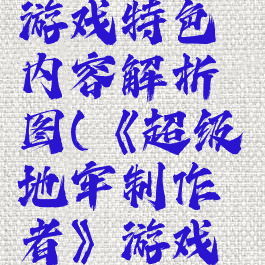 游戏特色
内容解析
图(《超级
地牢制作
者》游戏